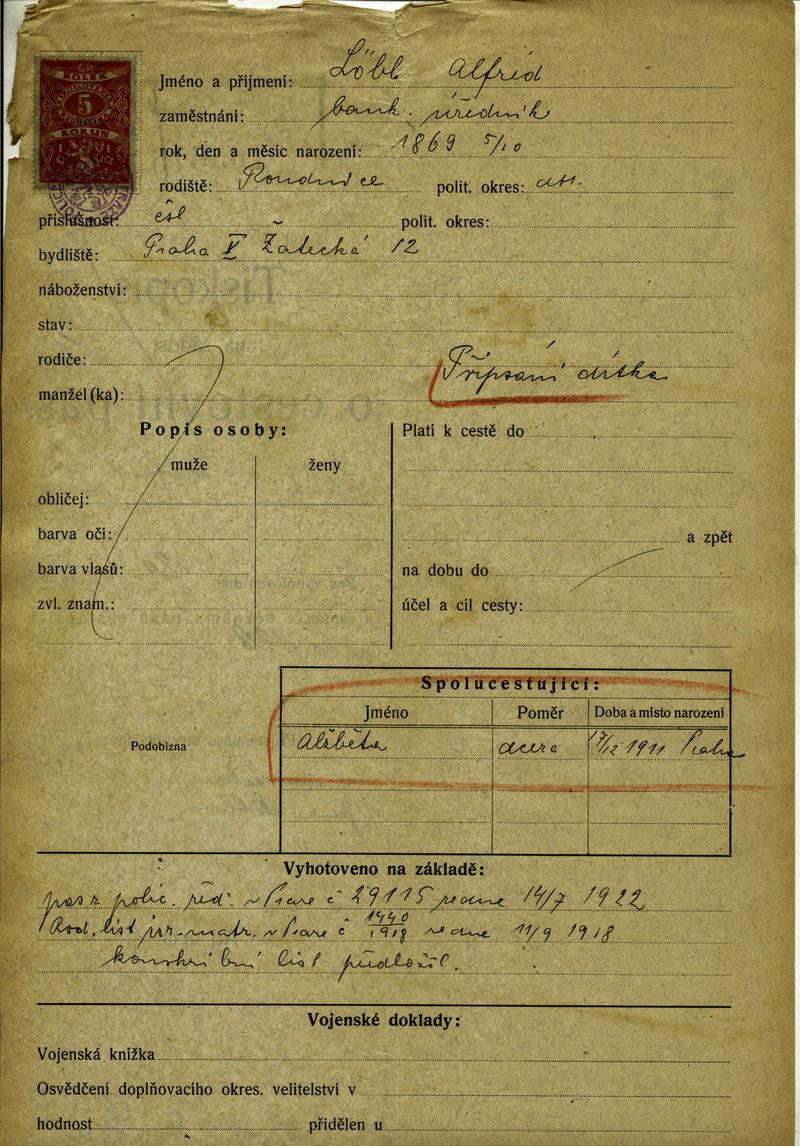 KOLEK
5
KORUN
Jméno a příjmení: Löbl Alfréd
zaměstnání: bank. úředník
rok, den a měsíc narození: 1869 5/10
rodiště: Roudnice polit. okres: dtt.
příslušnost: čsl polit. okres:
bydliště: Praha V Žatecká 12
náboženství:
stav:
rodiče:
Připsání dítka
manžel(ka):
Popis osoby:
muže ženy
obličej:
barva očí:
barva vlasů:
zvl. znam.:
Platí k cestě do
a zpět
na dobu do
účel a cíl cesty:
Spolucestující:
Jméno Poměr Doba a místo narození
Alžběta dcera 1911 Praha
Podobizna
Vyhotoveno na základě:
pas z polic. řed. v Praze č 29115 ze dne 14/7 1922
Rod. list isr. matr. v Praze č 1440/1918 ze dne 11/9 1918
konskribční list předložil.
Vojenské doklady:
Vojenská knížka
Osvědčení doplňovacího okres. velitelství v
hodnost přidělen u